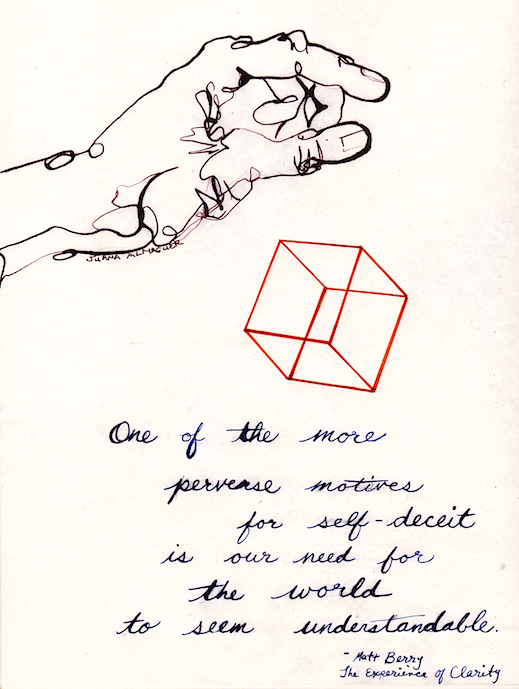 JUANA ALMAGUER
One of the more
perverse motives
for self-deceit
is our need for
the world
to seem understandable.
- Matt Berry
The Experience of Clarity